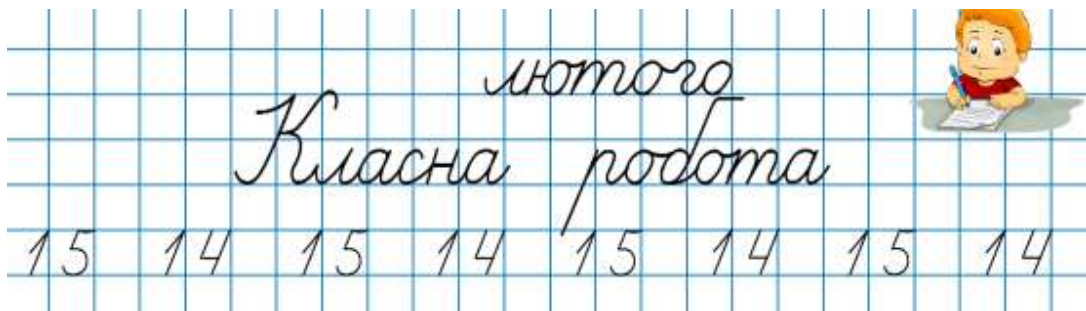 лютого
Класна робота
15 14 15 14 15 14 15 14